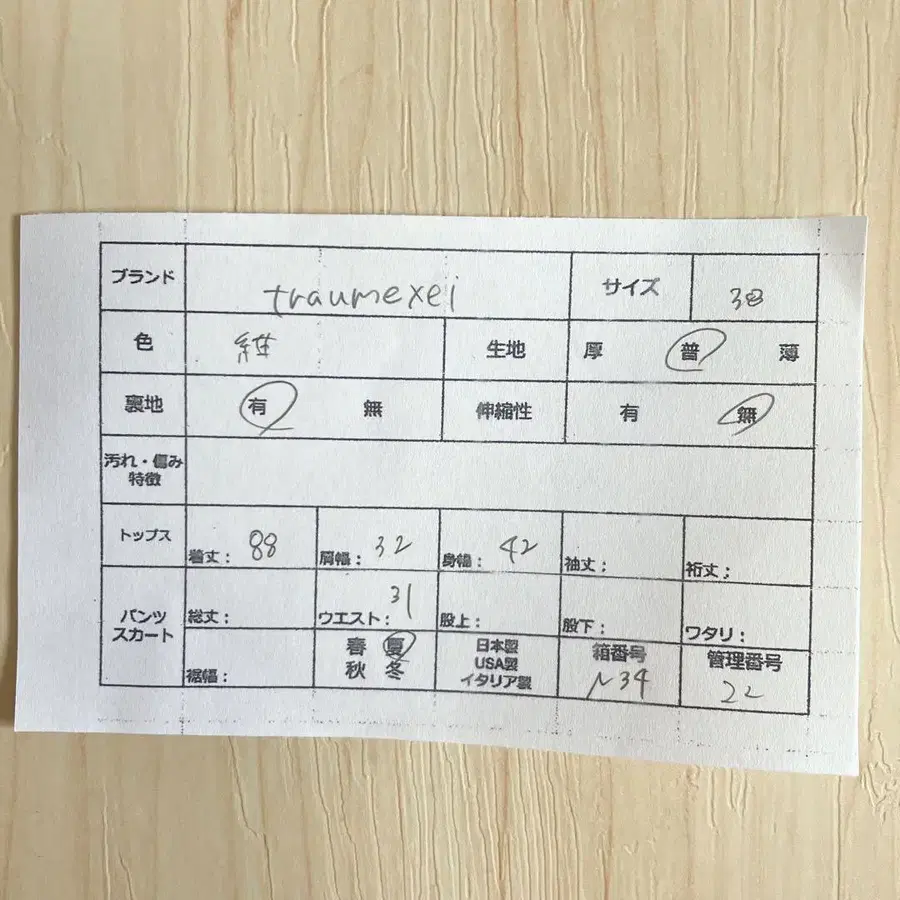 ブランド traumexei サイズ 38
色 紺 生地 厚 普 薄
裏地 有 無 伸縮性 有 無
汚れ・傷み
特徴
トップス 着丈: 88 肩幅: 32 身幅: 42 袖丈: 裄丈:
パンツ
スカート
総丈: ウエスト: 31 股上: 股下: ワタリ:
裾幅:
春 夏
秋 冬
日本製
USA製
イタリア製
箱番号
N34
管理番号
22